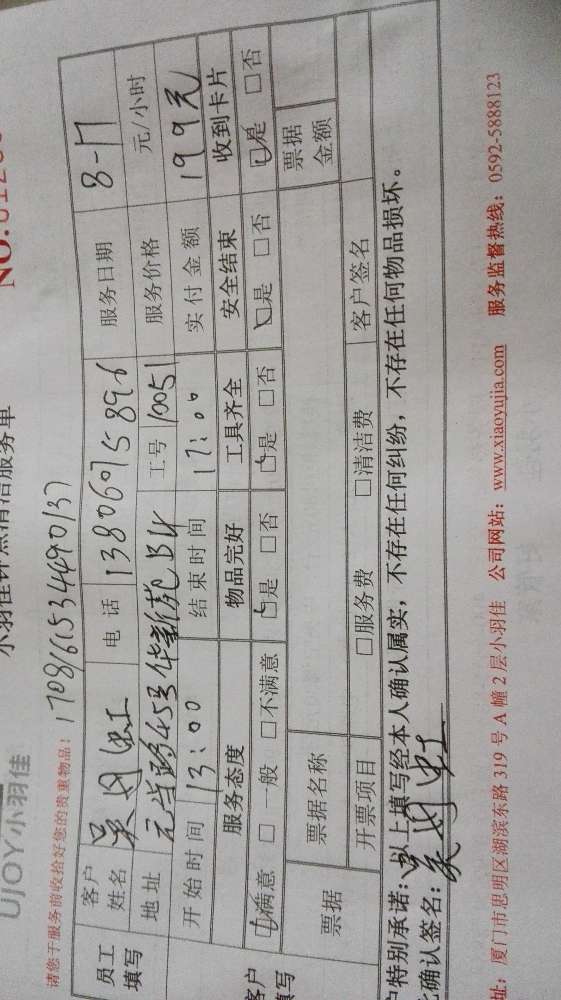 UJOY小羽佳
小羽佳钟点清洁服务单
请您于服务前收拾好您的贵重物品: 1708161534490137
员工填写 客户姓名 吴丹虹 电话 13806075896 服务日期 8-17
地址 元华路453华新苑B4 工号 10051 服务价格 元/小时
开始时间 13:00 结束时间 17:00 实付金额 199元
服务态度 物品完好 工具齐全 安全结束 收到卡片
☑满意 □一般 □不满意 ☑是 □否 ☑是 □否 ☑是 □否 ☑是 □否
票据 票据名称 票据金额
开票项目 □服务费 □清洁费 客户签名
户特别承诺: 以上填写经本人确认属实,不存在任何纠纷,不存在任何物品损坏。
确认签名: 吴丹虹
址: 厦门市思明区湖滨东路319号A幢2层小羽佳 公司网站: www.xiaoyujia.com 服务监督热线: 0592-5888123